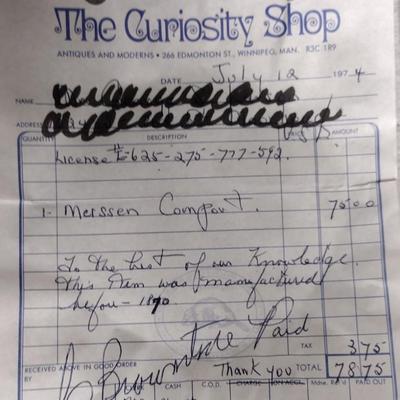 The Curiosity Shop
ANTIQUES AND MODERNS • 266 EDMONTON ST., WINNIPEG, MAN. R3C 1R9
DATE July 12 1974
NAME
ADDRESS
QUANTITY DESCRIPTION PRICE AMOUNT
License # E-625-275-777-592.
1- Meissen Comport. 75.00
To the best of our Knowledge
this Item was manufactured
before - 1890
Paid
TAX 3.75
RECEIVED ABOVE IN GOOD ORDER
Thank you TOTAL 78.75
BY CASH C.O.D. CHARGE ON ACC. Mdse. Ret'd PAID OUT